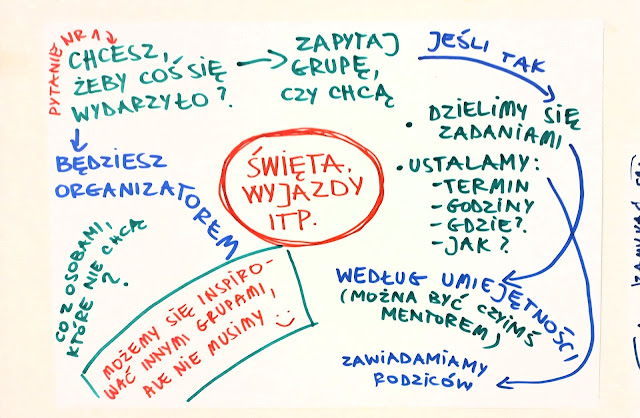 PYTANIE NR 1
CHCESZ,
ŻEBY COŚ SIĘ
WYDARZYŁO?
ZAPYTAJ
GRUPĘ,
CZY CHCĄ
JEŚLI TAK
• DZIELIMY SIĘ
ZADANIAMI
• USTALAMY:
- TERMIN
- GODZINY
- GDZIE?
- JAK?
BĘDZIESZ
ORGANIZATOREM
ŚWIĘTA,
WYJAZDY
ITP.
CO Z OSOBAMI,
KTÓRE NIE CHCĄ
?
MOŻEMY SIĘ INSPIRO-
WAĆ INNYMI GRUPAMI,
ALE NIE MUSIMY
WEDŁUG UMIEJĘTNOŚCI
(MOŻNA BYĆ CZYIMŚ
MENTOREM)
ZAWIADAMIAMY
RODZICÓW